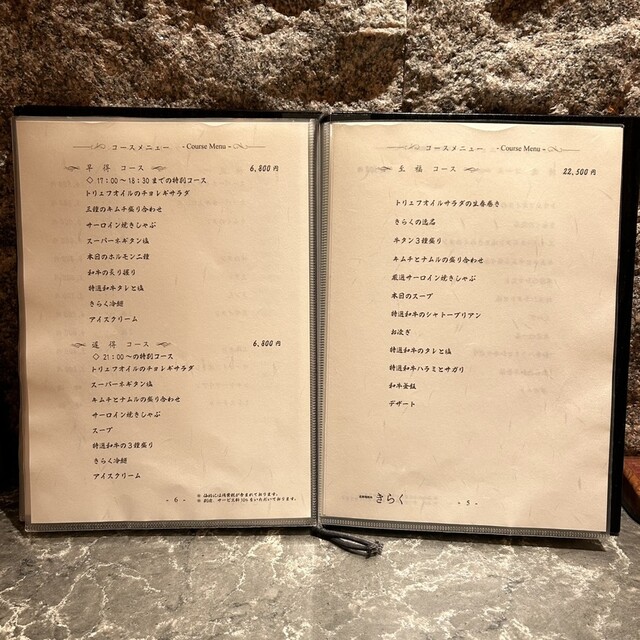 コースメニュー - Course Menu -
早得 コース 6,800円
◇ 17:00〜18:30までの特別コース
トリュフオイルのチョレギサラダ
三種のキムチ盛り合わせ
サーロイン焼きしゃぶ
スーパーネギタン塩
本日のホルモン二種
和牛の炙り握り
特選和牛タレと塩
きらく冷麺
アイスクリーム
遅得 コース 6,800円
◇ 21:00〜の特別コース
トリュフオイルのチョレギサラダ
スーパーネギタン塩
キムチとナムルの盛り合わせ
サーロイン焼きしゃぶ
スープ
特選和牛の3種盛り
きらく冷麺
アイスクリーム
- 6 -
※ 価格には消費税が含まれております。
※ 別途、サービス料10%をいただいております。
コースメニュー - Course Menu -
至福 コース 22,500円
トリュフオイルサラダの生春巻き
きらくの逸品
牛タン3種盛り
キムチとナムルの盛り合わせ
厳選サーロイン焼きしゃぶ
本日のスープ
特選和牛のシャトーブリアン
お次ぎ
特選和牛のタレと塩
特選和牛ハラミとサガリ
和牛釜飯
デザート
きらく
- 5 -